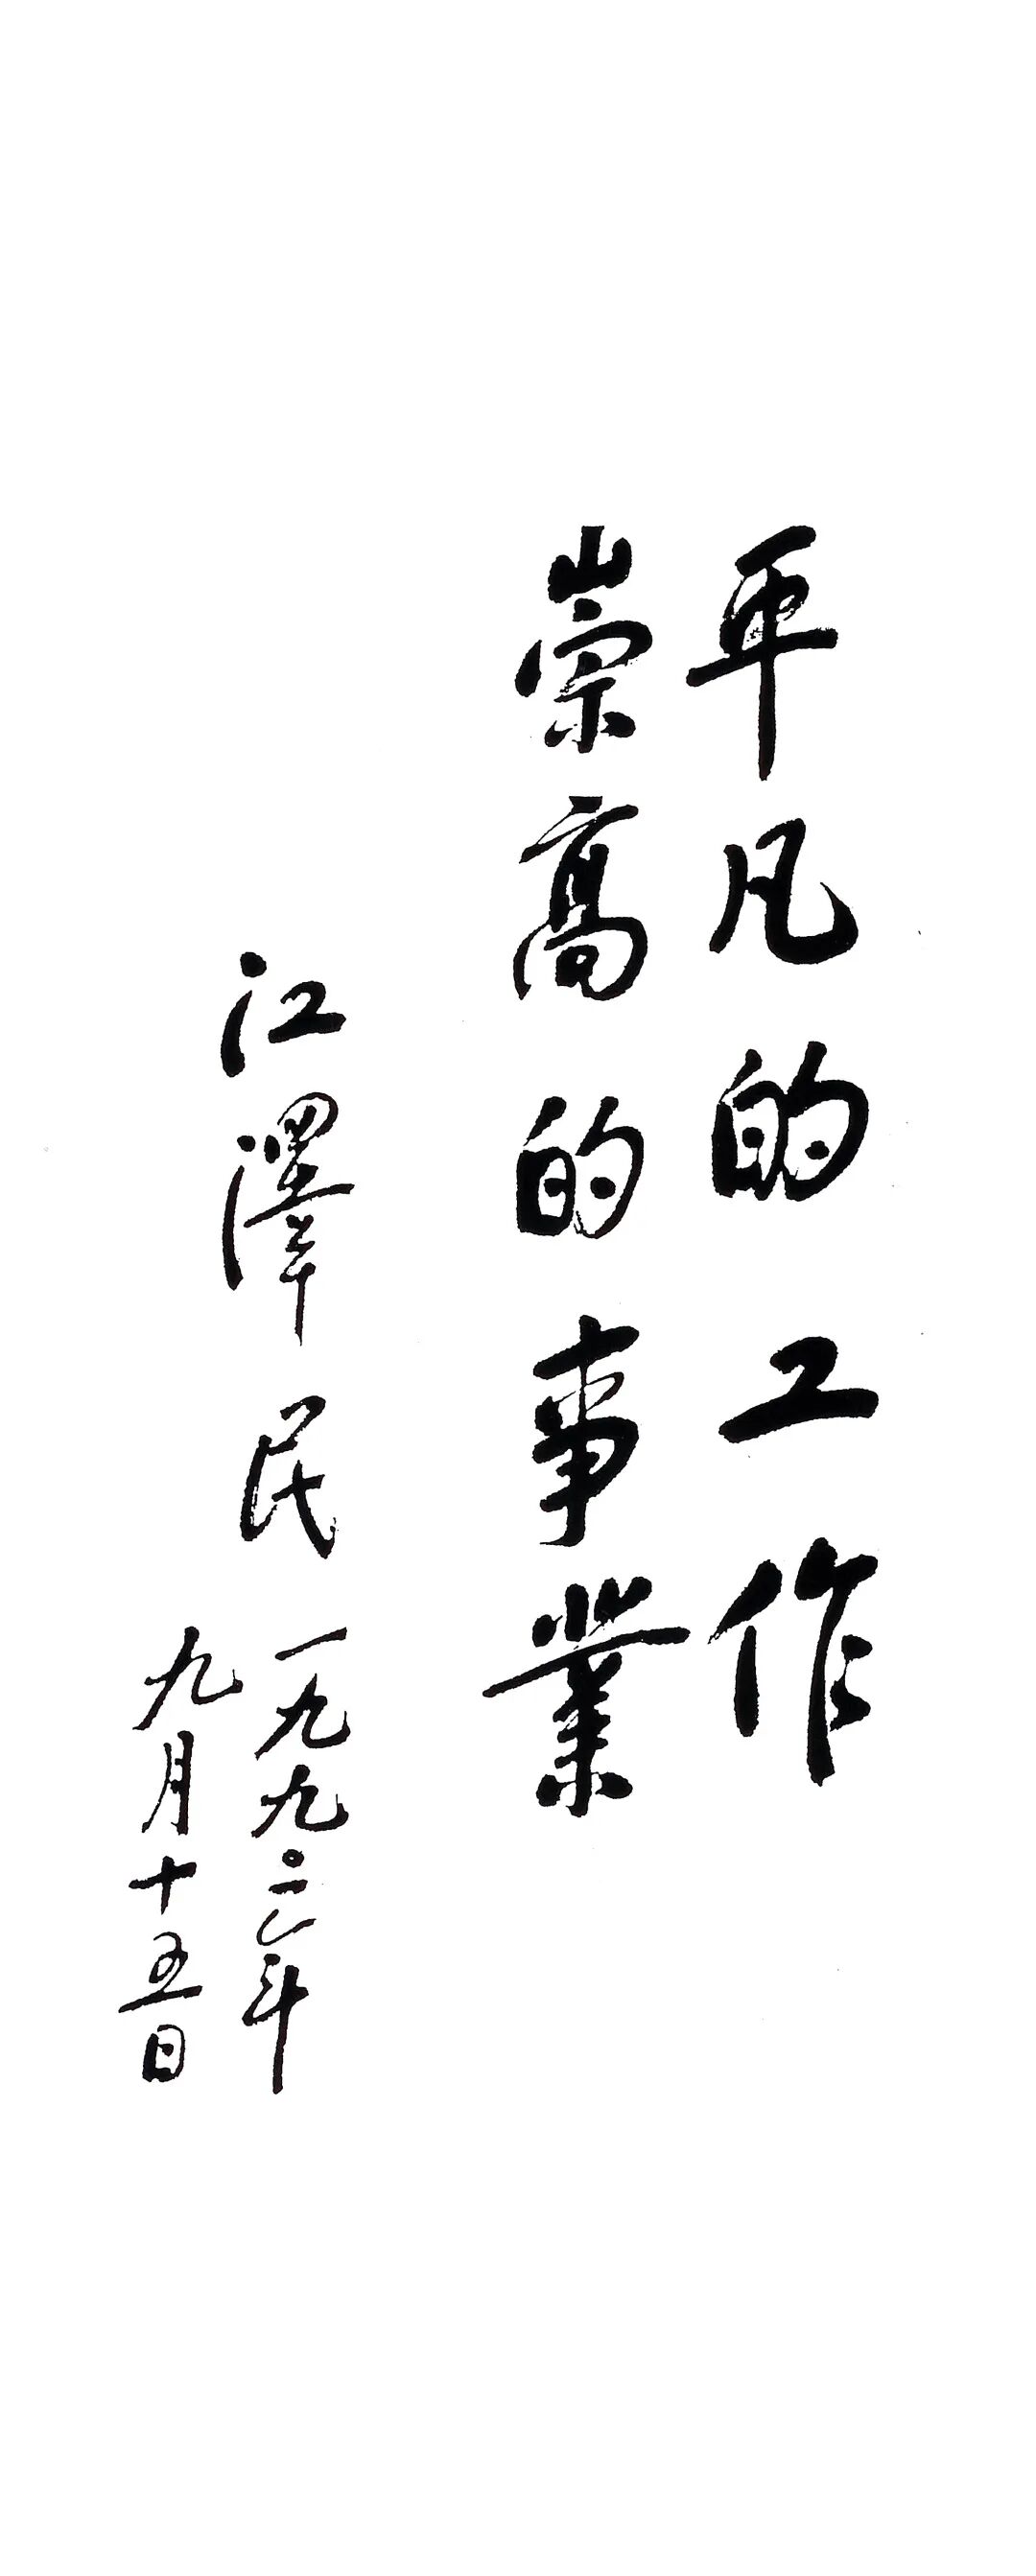 平凡的工作
崇高的事業
江澤民
一九九二年
九月十五日